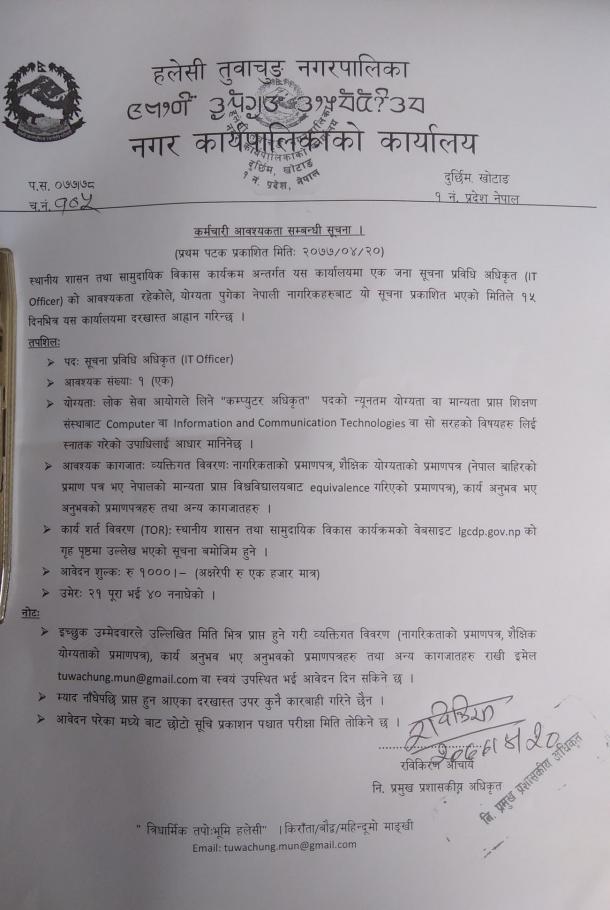 हलेसी तुवाचुङ नगरपालिका
नगर कार्यपालिकाको कार्यालय
दुर्छिम, खोटाङ
१ नं. प्रदेश, नेपाल
प.स. ०७७/७८
दुर्छिम, खोटाङ
च.नं. १०५
१ नं. प्रदेश नेपाल
कर्मचारी आवश्यकता सम्बन्धी सूचना ।
(प्रथम पटक प्रकाशित मितिः २०७७/०४/२०)
स्थानीय शासन तथा सामुदायिक विकास कार्यक्रम अन्तर्गत यस कार्यालयमा एक जना सूचना प्रविधि अधिकृत (IT
Officer) को आवश्यकता रहेकोले, योग्यता पुगेका नेपाली नागरिकहरुबाट यो सूचना प्रकाशित भएको मितिले १५
दिनभित्र यस कार्यालयमा दरखास्त आह्वान गरिन्छ ।
तपशिलः
➢ पदः सूचना प्रविधि अधिकृत (IT Officer)
➢ आवश्यक संख्याः १ (एक)
➢ योग्यताः लोक सेवा आयोगले लिने "कम्प्युटर अधिकृत" पदको न्यूनतम योग्यता वा मान्यता प्राप्त शिक्षण
संस्थाबाट Computer वा Information and Communication Technologies वा सो सरहको विषयहरु लिई
स्नातक गरेको उपाधिलाई आधार मानिनेछ ।
➢ आवश्यक कागजातः व्यक्तिगत विवरणः नागरिकताको प्रमाणपत्र, शैक्षिक योग्यताको प्रमाणपत्र (नेपाल बाहिरको
प्रमाण पत्र भए नेपालको मान्यता प्राप्त विश्वविद्यालयबाट equivalence गरिएको प्रमाणपत्र), कार्य अनुभव भए
अनुभवको प्रमाणपत्रहरु तथा अन्य कागजातहरु ।
➢ कार्य शर्त विवरण (TOR): स्थानीय शासन तथा सामुदायिक विकास कार्यक्रमको वेबसाइट lgcdp.gov.np को
गृह पृष्ठमा उल्लेख भएको सूचना बमोजिम हुने ।
➢ आवेदन शुल्कः रु १०००।– (अक्षरेपी रु एक हजार मात्र)
➢ उमेरः २१ पूरा भई ४० ननाघेको ।
नोटः
➢ इच्छुक उम्मेदवारले उल्लिखित मिति भित्र प्राप्त हुने गरी व्यक्तिगत विवरण (नागरिकताको प्रमाणपत्र, शैक्षिक
योग्यताको प्रमाणपत्र), कार्य अनुभव भए अनुभवको प्रमाणपत्रहरु तथा अन्य कागजातहरु राखी इमेल
tuwachung.mun@gmail.com वा स्वयं उपस्थित भई आवेदन दिन सकिने छ ।
➢ म्याद नाँघेपछि प्राप्त हुन आएका दरखास्त उपर कुनै कारबाही गरिने छैन ।
➢ आवेदन परेका मध्ये बाट छोटो सूचि प्रकाशन पश्चात परीक्षा मिति तोकिने छ ।
२०७७/४/२०
रविकिरण आचार्य
नि. प्रमुख प्रशासकीय अधिकृत
नि. प्रमुख प्रशासकीय अधिकृत
" त्रिधार्मिक तपोःभूमि हलेसी" । किराँता/बौद्ध/महिन्दूमो माङ्खी
Email: tuwachung.mun@gmail.com